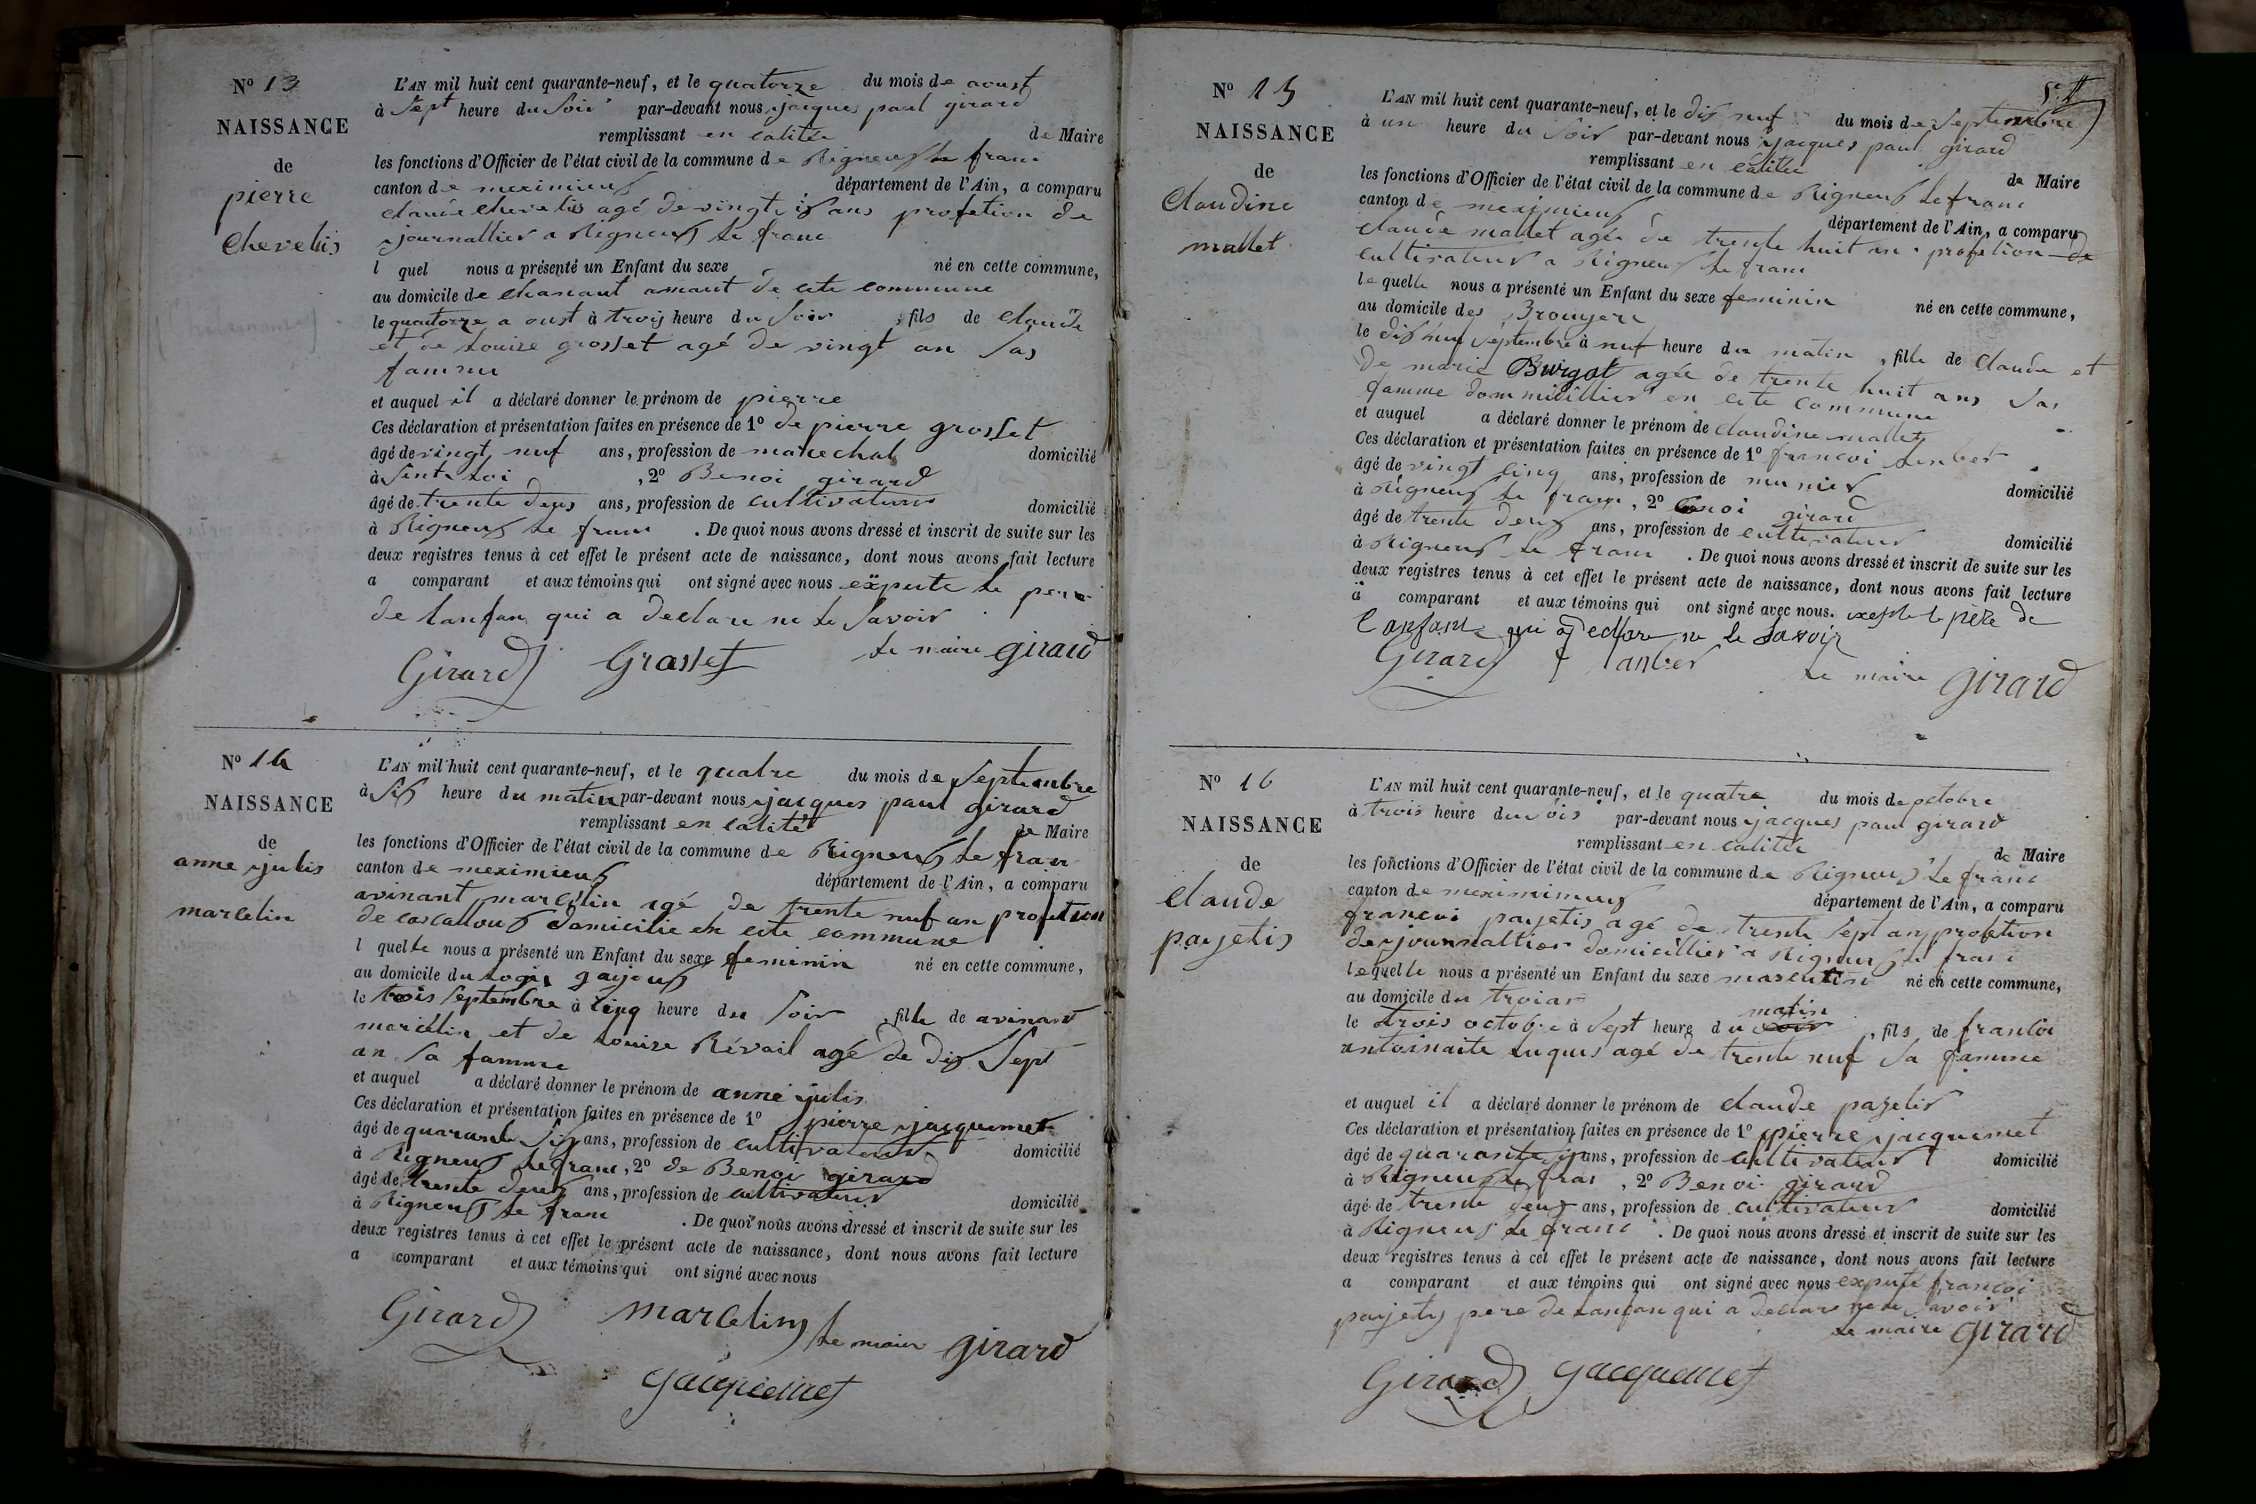 Nº 13
NAISSANCE
de
pierre
Chevelis
L'AN mil huit cent quarante-neuf, et le quatorze du mois de aoust
à Sept heure du Soir par-devant nous jacques paul girard
remplissant en calitée de Maire
les fonctions d'Officier de l'état civil de la commune de Rigneux le franc
canton de meximieux département de l'Ain, a comparu
claude chevelis agé de vingt six ans profetion de
journallier a Rigneux le franc
l quel nous a présenté un Enfant du sexe né en cette commune,
au domicile de chanaut amant de cete commune
le quatorze a oust à trois heure du Soir , fils de Claude
et de Louize grosset agé de vingt an Sas
famme
et auquel il a déclaré donner le prénom de pierre
Ces déclaration et présentation faites en présence de 1º de pierre grosset
âgé de vingt neuf ans, profession de marechal domicilié
à Sente Loi , 2º Benoi girard
âgé de trente deus ans, profession de cultivateur domicilié
à Rigneux le franc . De quoi nous avons dressé et inscrit de suite sur les
deux registres tenus à cet effet le présent acte de naissance, dont nous avons fait lecture
a comparant et aux témoins qui ont signé avec nous expecte le pere
de lanfan qui a declare ne le Savoir
Girard Grasset le maire girard
Nº 14
NAISSANCE
de
anne julis
marcelin
L'AN mil huit cent quarante-neuf, et le quatre du mois de Septembre
à Six heure du matin par-devant nous jacques paul girard
remplissant en calité de Maire
les fonctions d'Officier de l'état civil de la commune de Rigneux le fran
canton de meximieux département de l'Ain, a comparu
avinant marcelin agé de trente nuf an profetion
de domicilie en cete commune
l quelle nous a présenté un Enfant du sexe feminin né en cette commune,
au domicile du Logis gajoux
le trois Septembre à cinq heure du Soir , fille de avinant
marcélin et de Louize Révail agé de dix Sept
an Sa famme
et auquel a déclaré donner le prénom de anne julis
Ces déclaration et présentation faites en présence de 1º pierre jacquemet
âgé de quarante Six ans, profession de cultivateur domicilié
à Rigneux le franc, 2º de Benoi girard
âgé de trente deux ans, profession de cultivateur domicilié
à Rigneux le franc . De quoi nous avons dressé et inscrit de suite sur les
deux registres tenus à cet effet le présent acte de naissance, dont nous avons fait lecture
a comparant et aux témoins qui ont signé avec nous
Girard marcelin le maire girard
jacquemet
Nº 15
NAISSANCE
de
Claudine
mallet
L'AN mil huit cent quarante-neuf, et le dix neuf du mois de Septembre
à un heure du Soir par-devant nous jacques paul girard
remplissant en calitée de Maire
les fonctions d'Officier de l'état civil de la commune de Rigneux le franc
canton de meximieux département de l'Ain, a comparu
claude mallet agée de trente huit an profetion de
cultivateur a Rigneux le franc
le quelle nous a présenté un Enfant du sexe feminin né en cette commune,
au domicile des Brouyere
le dix neuf Septembre à neuf heure du matin , fille de Claude et
de marie Burgat agée de trente huit ans Sas
famme dommicillier en cete commune
et auquel a déclaré donner le prénom de claudine mallet
Ces déclaration et présentation faites en présence de 1º francoi
âgé de vingt cinq ans, profession de munier domicilié
à Rigneux le franc , 2º benoi girard
âgé de trente deux ans, profession de cultivateur domicilié
à Rigneux le franc . De quoi nous avons dressé et inscrit de suite sur les
deux registres tenus à cet effet le présent acte de naissance, dont nous avons fait lecture
a comparant et aux témoins qui ont signé avec nous. exepte le pere de
l'anfant qui a declare ne le Savoir
Girard le maire girard
Nº 16
NAISSANCE
de
Claude
payetis
L'AN mil huit cent quarante-neuf, et le quatre du mois de octobre
à trois heure du Sois par-devant nous jacques paul girard
remplissant en calitée de Maire
les fonctions d'Officier de l'état civil de la commune de Rigneux le franc
canton de meximimeux département de l'Ain, a comparu
francoi payetis agé de trente Sept an profetion
de journaltier domicillier a Rigneux le franc
lequelle nous a présenté un Enfant du sexe masculin né en cette commune,
au domicile du troiar
matin
le trois octobre à Sept heure du soir , fils de francoi
antoinaite Luquis agé de trente neuf Sa famme
et auquel il a déclaré donner le prénom de claude payelis
Ces déclaration et présentation faites en présence de 1º pierre jacquemet
âgé de quarante six ans, profession de cultivateur domicilié
à Rigneux le fran , 2º Benoi girard
âgé de trente deux ans, profession de cultivateur domicilié
à Rigneux le franc . De quoi nous avons dressé et inscrit de suite sur les
deux registres tenus à cet effet le présent acte de naissance, dont nous avons fait lecture
a comparant et aux témoins qui ont signé avec nous expecte francoi
payetis pere de Lanfan qui a declare ne le Savoir
le maire girard
Girard jacquemet